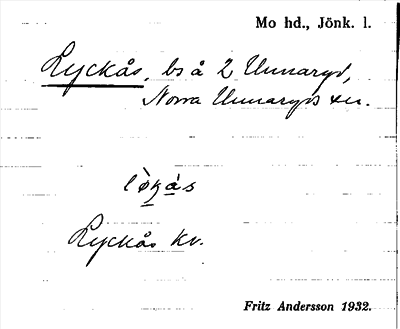 Mo hd., Jönk. l.
Lyckås, bs å 2 Unnaryd,
Norra Unnaryds sn.
Lyckås kv.
Fritz Andersson 1932.